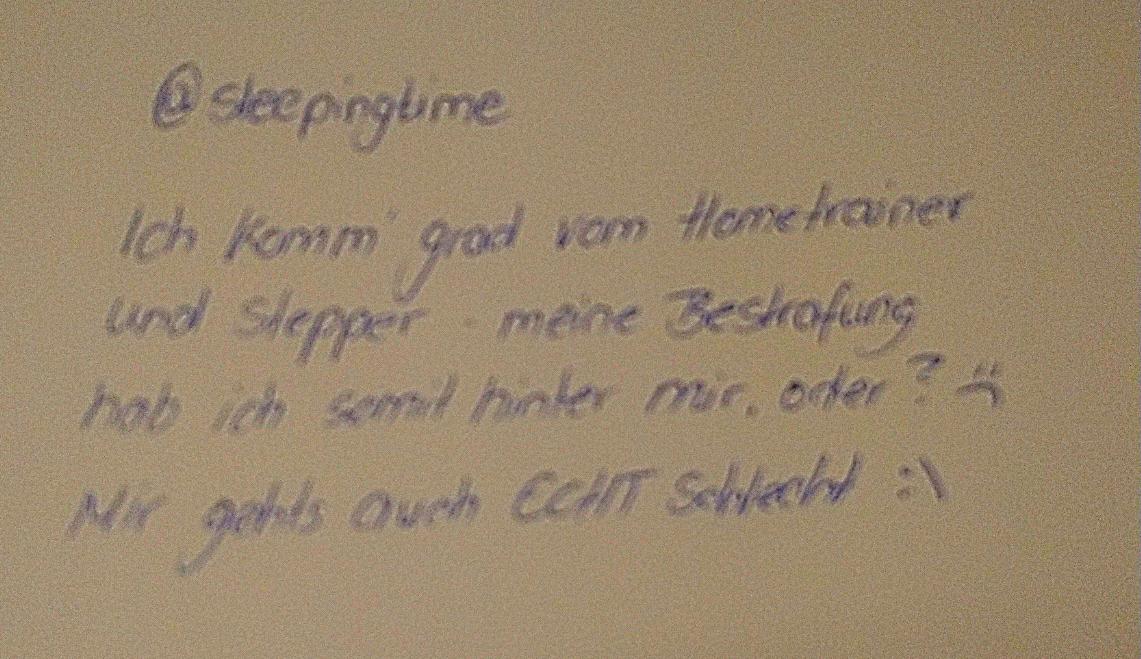 @sleepingtime
Ich komm' grad vom Hometrainer
und Stepper - meine Bestrafung
hab ich somit hinter mir, oder? :(
Mir gehts auch ECHT schlecht :\